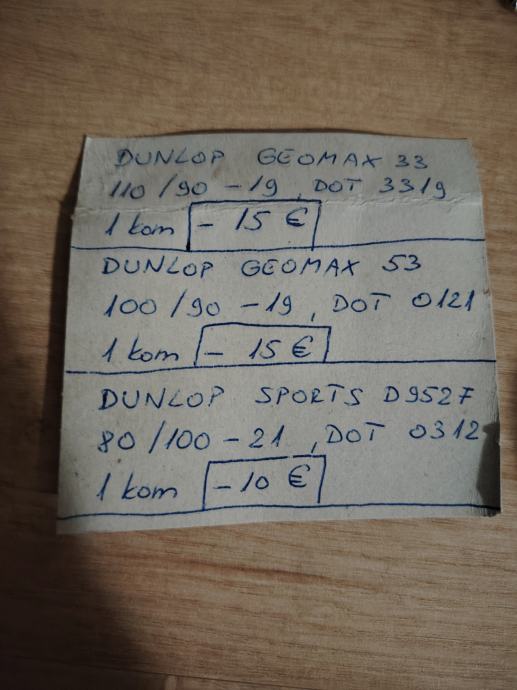 DUNLOP GEOMAX 33
110/90 - 19, DOT 3319
1 kom - 15 €
DUNLOP GEOMAX 53
100/90 - 19, DOT 0121
1 kom - 15 €
DUNLOP SPORTS D952F
80/100 - 21, DOT 0312
1 kom - 10 €